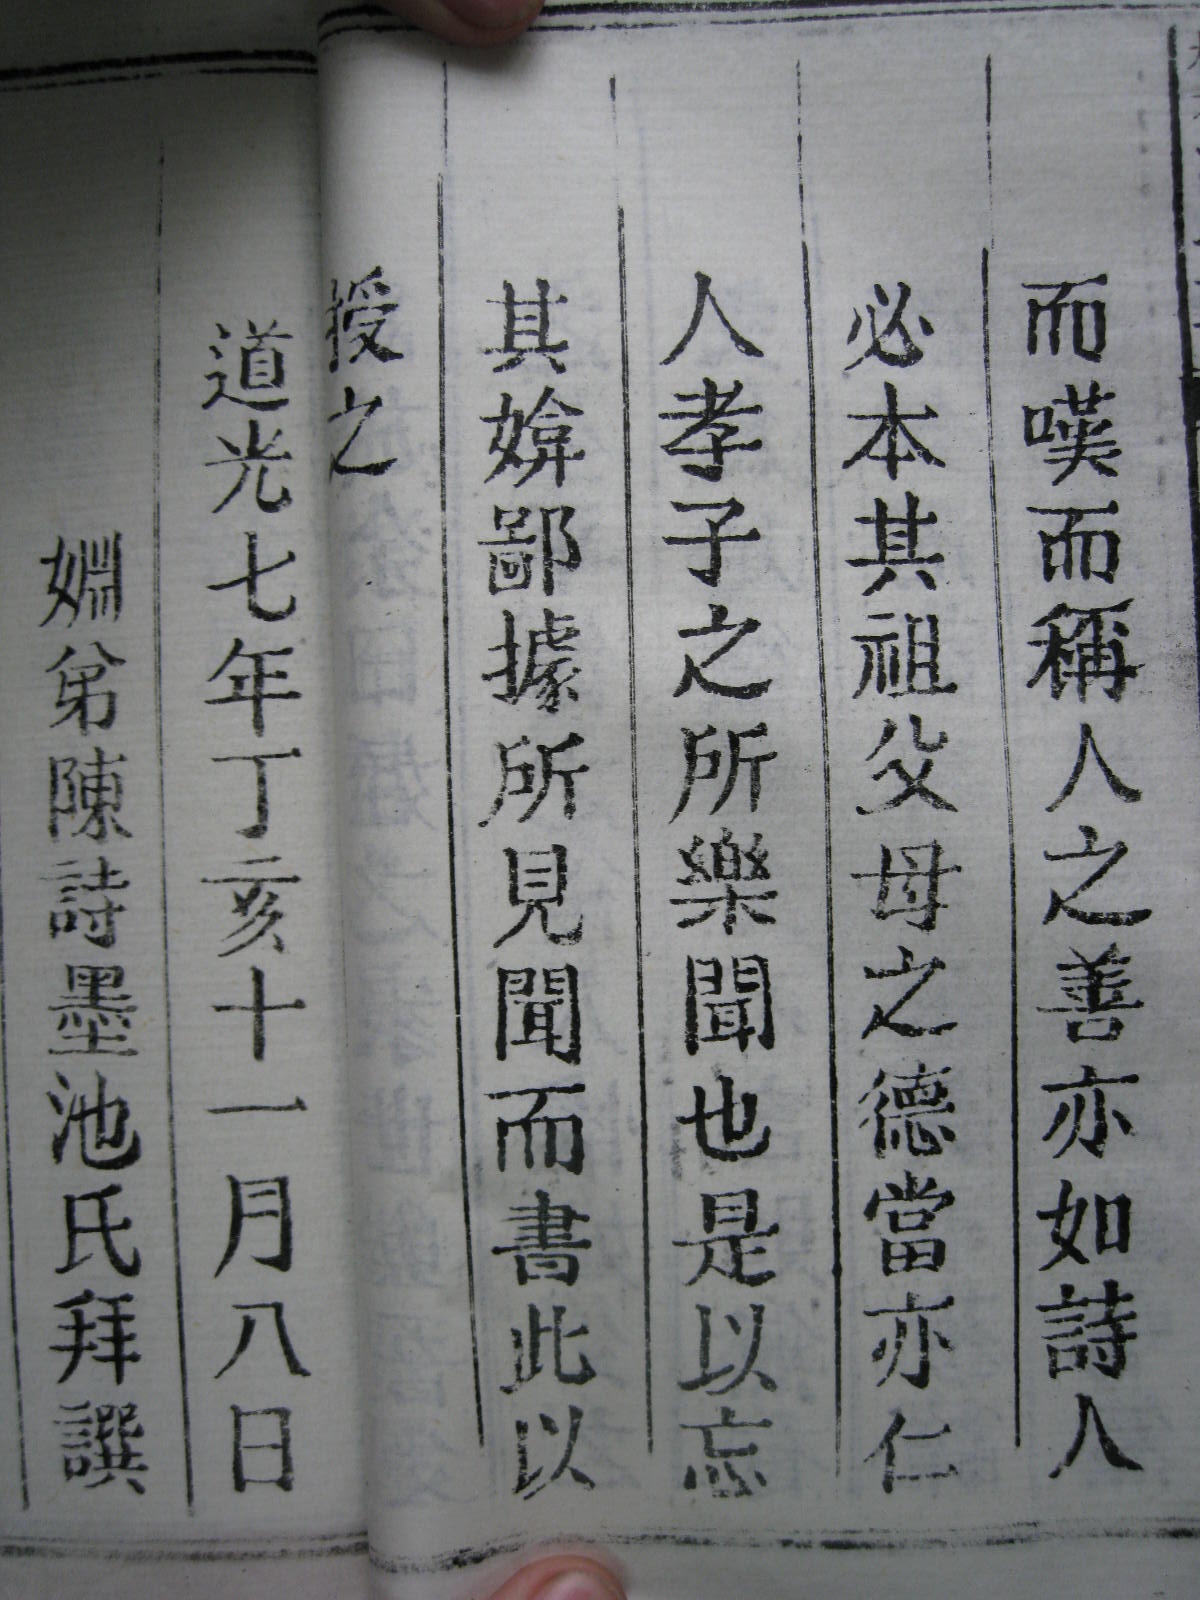 而嘆而稱人之善亦如詩人
必本其祖父母之德當亦仁
人孝子之所樂聞也是以忘
其媕鄙據所見聞而書此以
授之
道光七年丁亥十一月八日
姻弟陳詩墨池氏拜譔